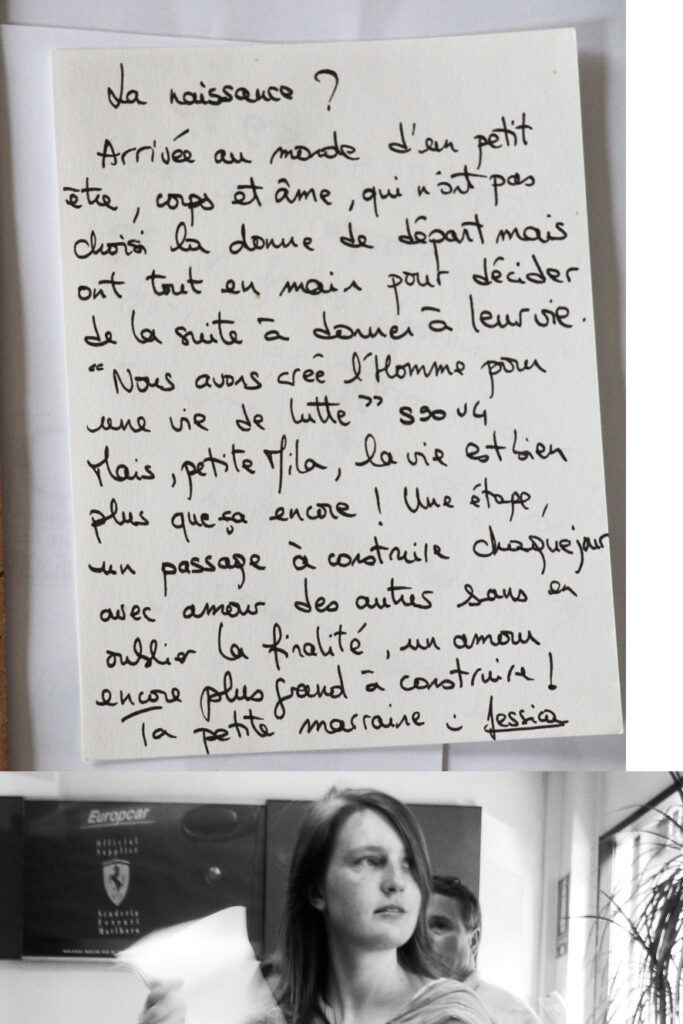 La naissance ?
Arrivée au monde d'un petit
être, corps et âme, qui n'ont pas
choisi la donne de départ mais
ont tout en main pour décider
de la suite à donner à leur vie.
“Nous avons créé l'Homme pour
une vie de lutte” S90 V4
Mais, petite Mila, la vie est bien
plus que ça encore ! Une étape,
un passage à construire chaque jour
avec amour des autres sans en
oublier la finalité, un amour
encore plus grand à construire !
Ta petite marraine :) Jessica
Europcar
Official
Supplier
Scuderia
Ferrari
Marlboro